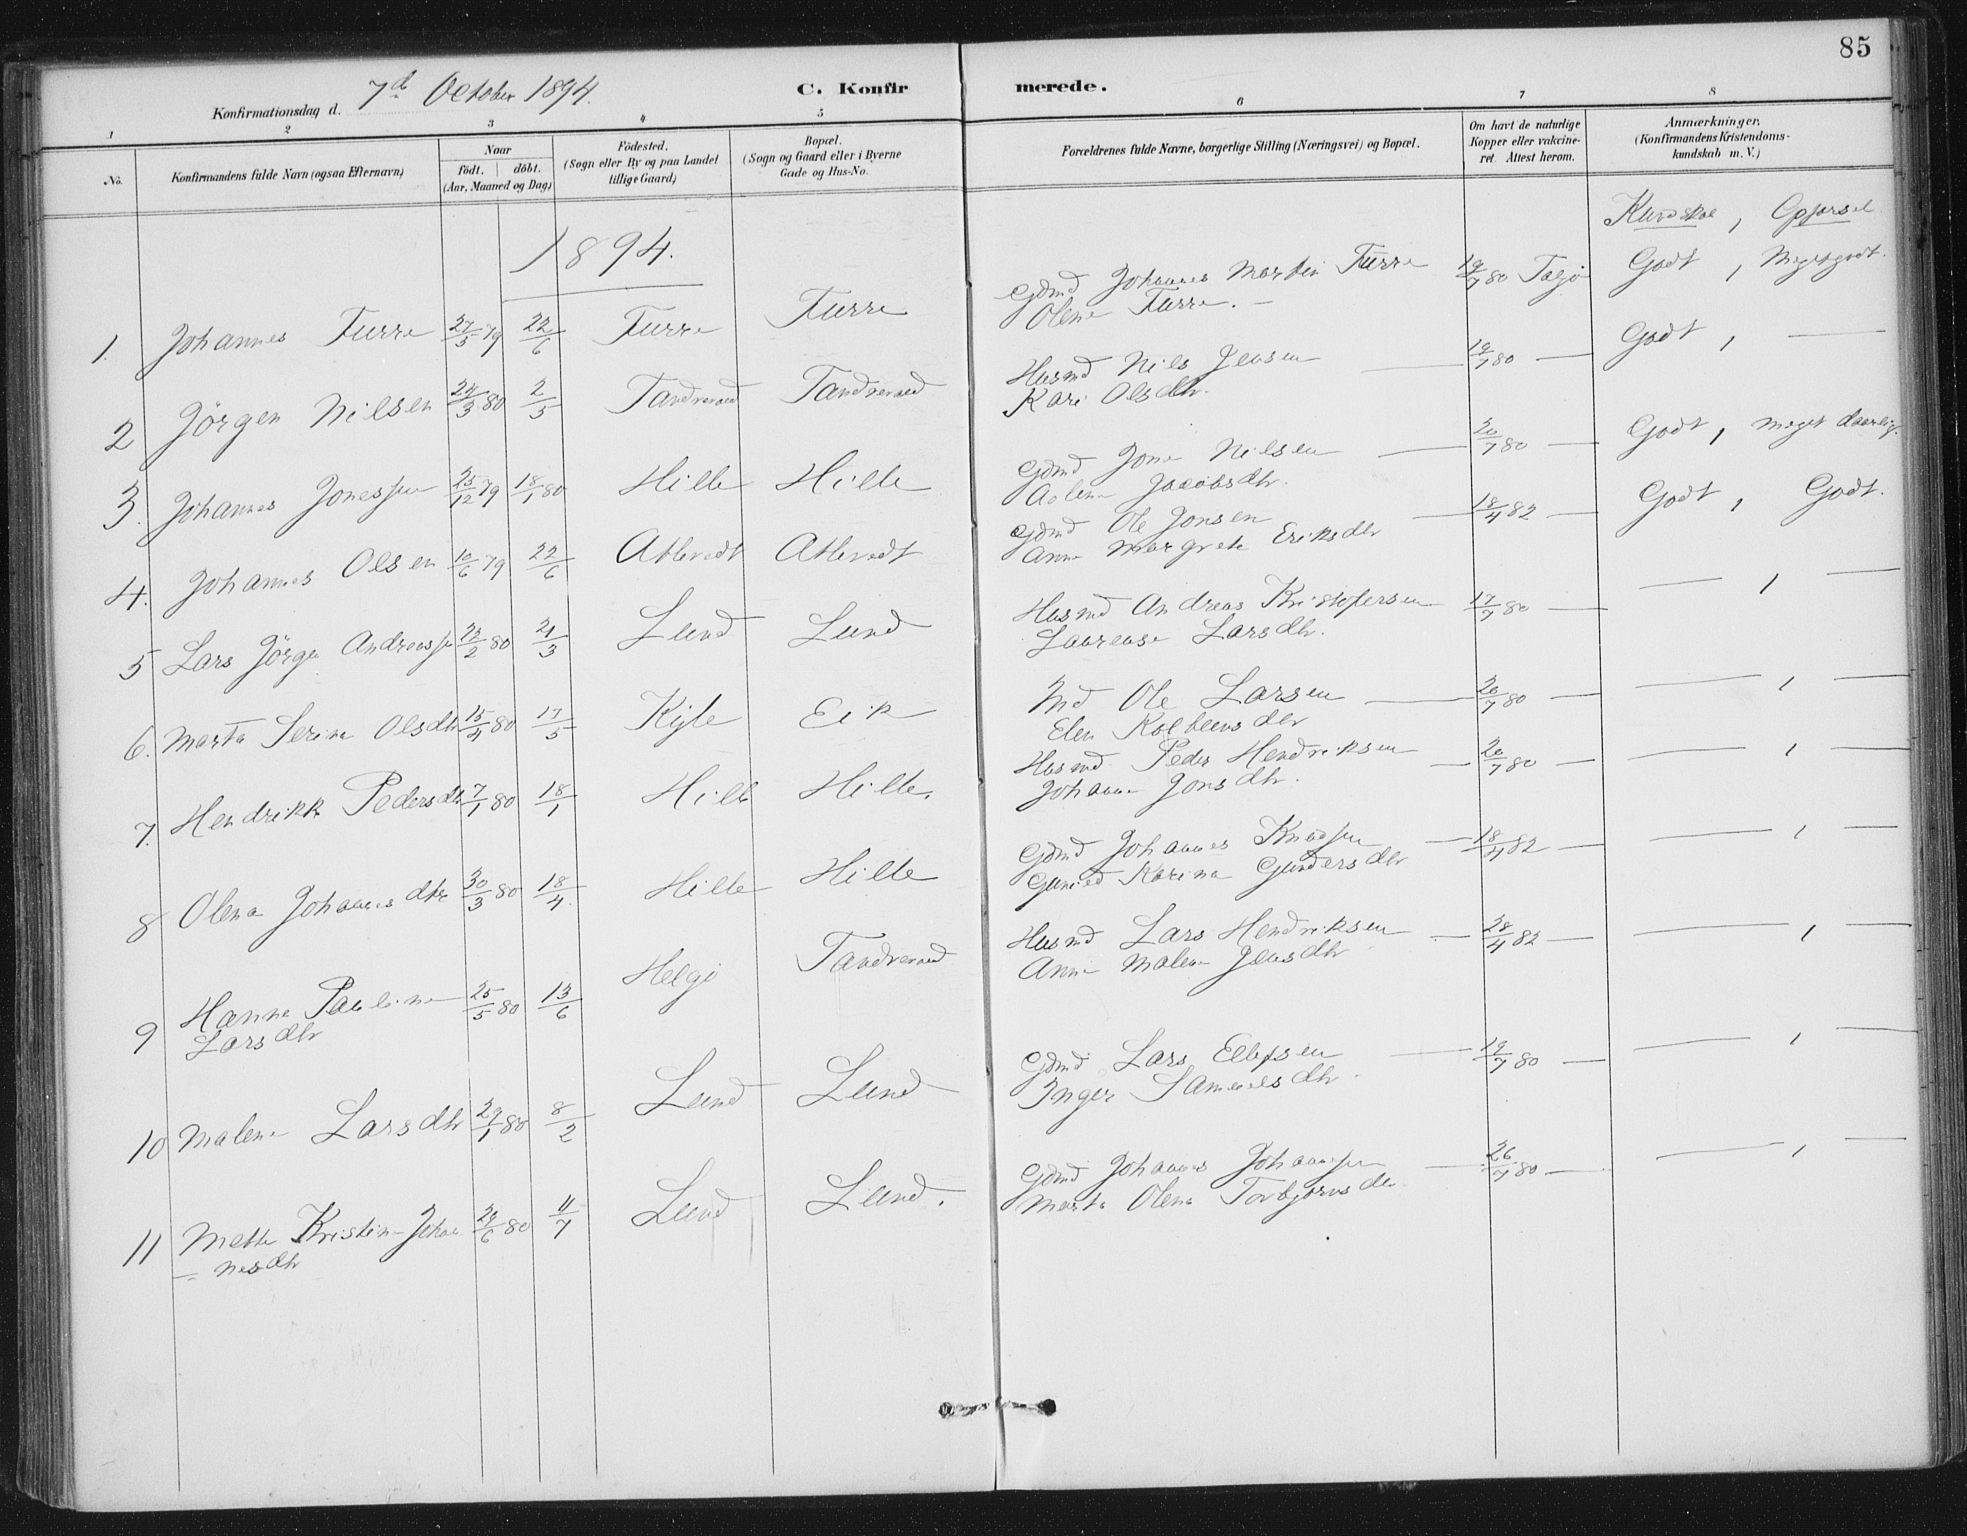 85
Konfirmationsdag d. 7d October 1894.
C. Konfirmerede.
1 2 3 4 5 6 7 8
No. Konfirmandens fulde Navn (ogsaa Efternavn)
Naar födt. | döbt. (Aar, Maaned og Dag)
Födested. (Sogn eller By og paa Landet tillige Gaard)
Bopæl. (Sogn og Gaard eller i Byerne Gade og Hus-No.
Forældrenes fulde Navne, borgerlige Stilling (Næringsvei) og Bopæl.
Om havt de naturlige Kopper eller vakcineret. Attest herom.
Anmærkninger. (Konfirmandens Kristendomskundskab m. V.)
Kundskab, Opførsel
1894.
1. Johannes Furre 27/5 79 22/6 Furre Furre Gdmd Johannes Martin Furre 19/7 80 Godt, Meget godt.
Olene Furre. —
2 Jörgen Nilsen 24/3 80 2/5 Tandrevaed Tandrevaed Husmd Nils Jensen — 19/7 80 — Godt, —
Kari Olsdtr.
3. Johannes Jonessen 25/12 79 18/1 80 Hille Hille Gdmd Jone Nilsen — 20/7 80 — Godt, meget daarlig.
Jacobsdtr.
4. Johannes Olsen 10/6 79 22/6 Gdmd Ole Jonsen — 18/4 82 — Godt, Godt.
Anne Margrete Eriksdtr
5 Lars Jörgen Andreassen 22/2 80 21/3 Lund Lund Husmd Andreas Kristofersen 17/7 80 — — , —
Laurense Larsdtr.
6. Marta Serine Olsdtr 15/4 80 17/5 Kyle Eik Md Ole Larsen — 20/7 80 — — , —
Elen Kolbeensdtr
7. Hendrikke Pedersdtr 7/1 80 18/1 Hille Hille. Husmd Peder Hendriksen — 20/7 80 — — , —
Johanne Jonsdtr.
8 Olena Johannesdtr 30/3 80 18/4 Hille Hille Gdmd Johannes Knudsen — 18/4 82 — — , —
Gunild Karina Gundersdtr
9 Hanna Pauline 25/5 80 13/6 Helgö Tandrevaed Husmd Lars Hendriksen — 28/4 82 — — , —
Larsdtr Anne Malene Jensdtr
10 Malene Larsdtr 29/1 80 8/2 Lund Lund Gdmd Lars Ellefsen — 19/7 80 — — , —
Inger Samuelsdtr.
11 Mette Kristine Johan 29/6 80 11/7 Lund Lund. Gdmd Johannes Johannessen — 26/7 80 — — , —
= nesdtr Marta Olena Torbjørnsdtr